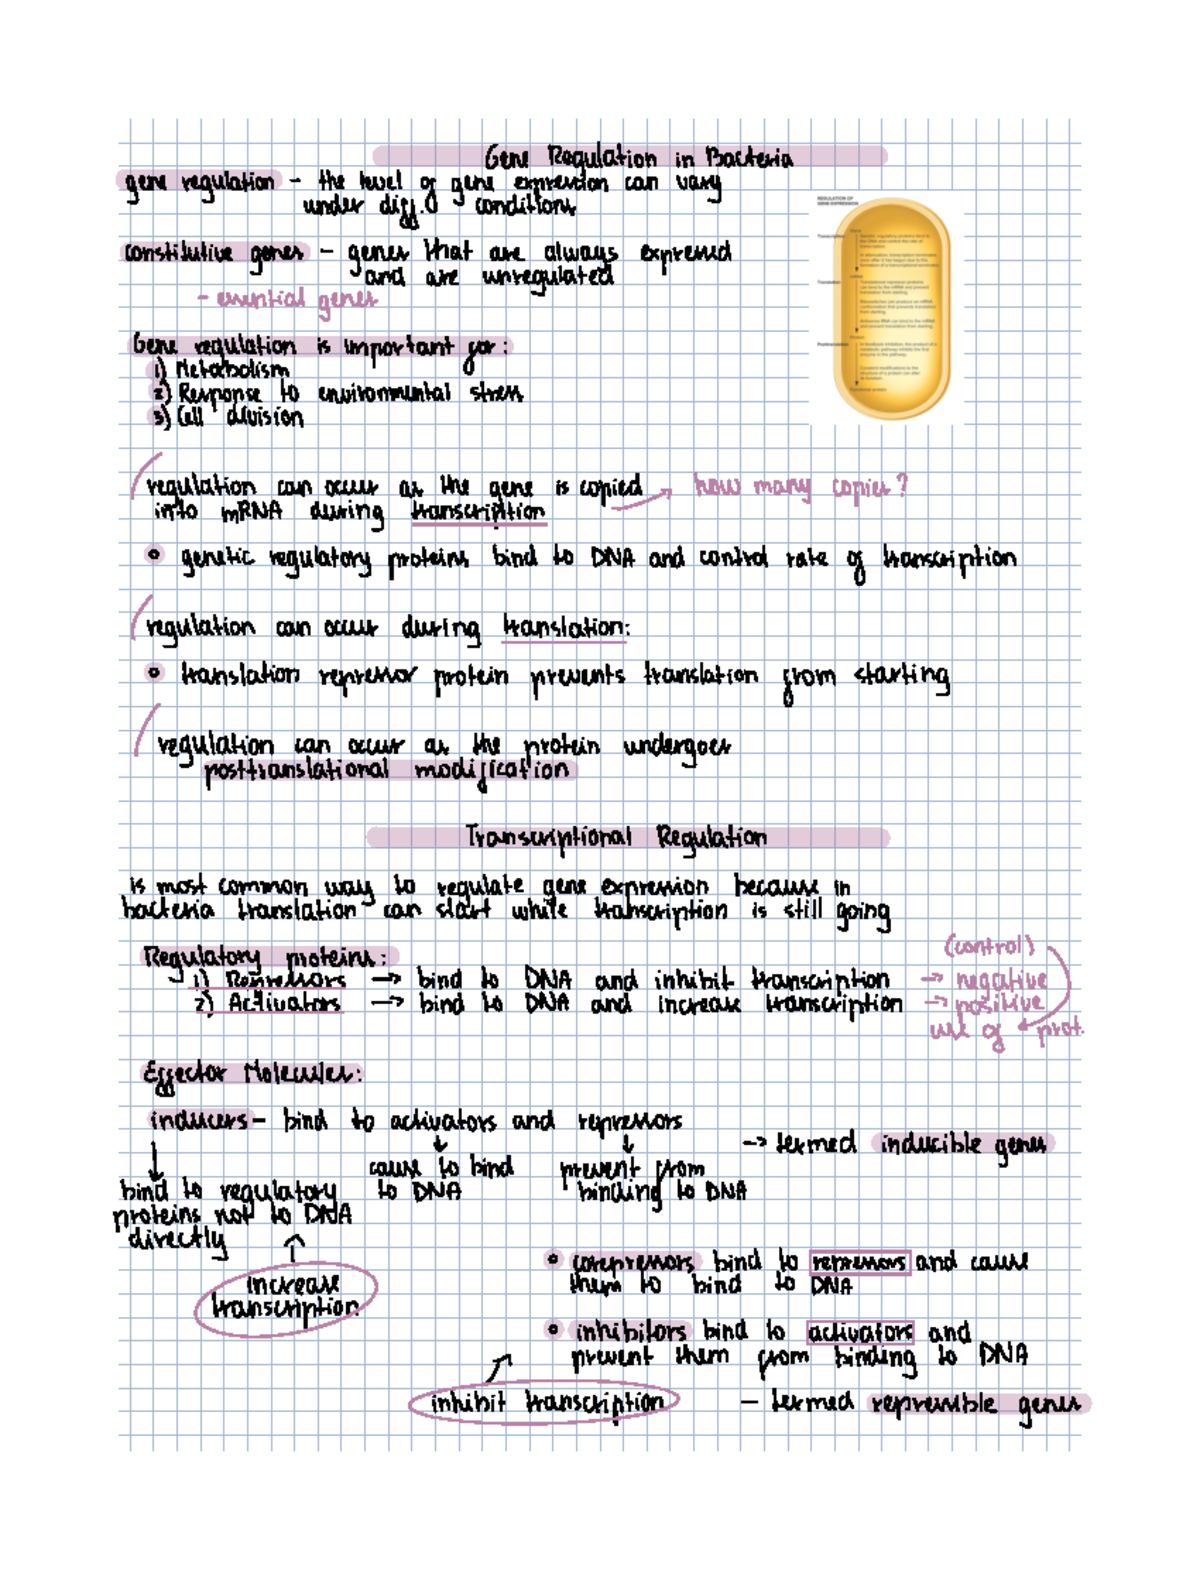 Gene Regulation in Bacteria
gene regulation – the level of gene expression can vary
under diff. conditions
REGULATION OF
GENE EXPRESSION
constitutive genes – genes that are always expressed
and are unregulated
– essential genes
Gene regulation is important for:
1) Metabolism
2) Response to environmental stress
3) Cell division
Transcription
Translation
Posttranslation
regulation can occur as the gene is copied → how many copies?
into mRNA during transcription
genetic regulatory proteins bind to DNA and control rate of transcription
regulation can occur during translation:
translation repressor protein prevents translation from starting
regulation can occur as the protein undergoes
posttranslational modification
Transcriptional Regulation
is most common way to regulate gene expression because in
bacteria translation can start while transcription is still going
Regulatory proteins:
(control)
1) Repressors → bind to DNA and inhibit transcription → negative
2) Activators → bind to DNA and increase transcription → positive
use of prot.
Effector Molecules:
inducers – bind to activators and repressors
→ termed inducible genes
cause to bind prevent from
bind to regulatory to DNA binding to DNA
proteins not to DNA
directly
corepressors bind to repressors and cause
increase them to bind to DNA
transcription
inhibitors bind to activators and
prevent them from binding to DNA
inhibit transcription – termed repressible genes